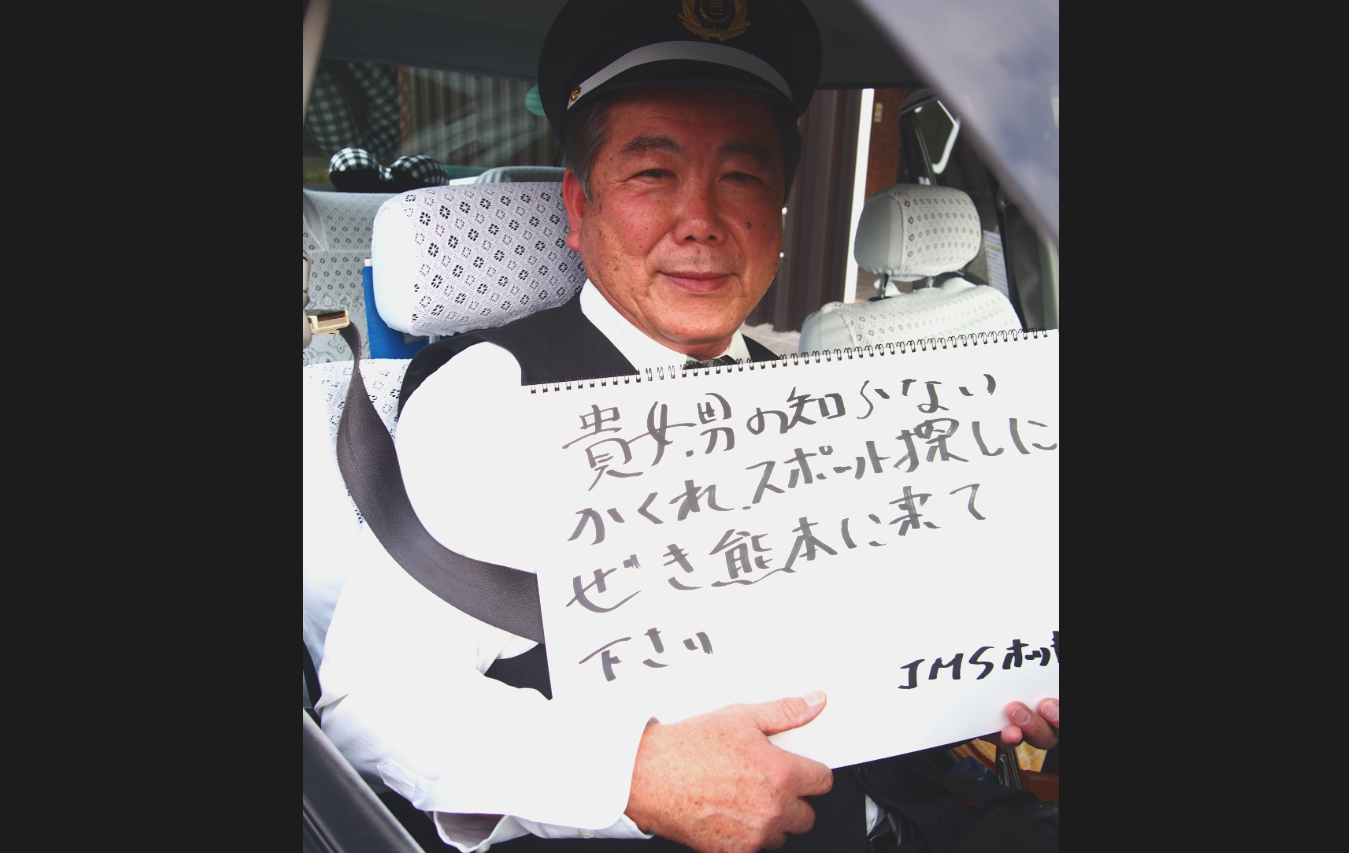 貴女.男の知らない
かくれ.スポット探しに
ぜき熊本に来て
下さい
JMSホッ